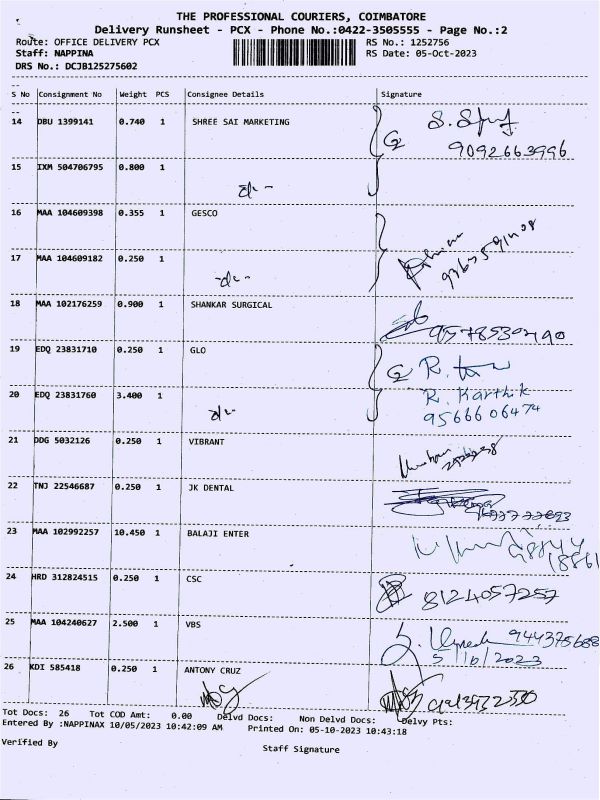 THE PROFESSIONAL COURIERS, COIMBATORE
Delivery Runsheet - PCX - Phone No.:0422-3505555 - Page No.:2
Route: OFFICE DELIVERY PCX RS No.: 1252756
Staff: NAPPINA RS Date: 05-Oct-2023
DRS No.: DCJB125275602
S No Consignment No Weight PCS Consignee Details Signature
14 DBU 1399141 0.740 1 SHREE SAI MARKETING
9092663996
15 IXM 504706795 0.800 1
16 MAA 104609398 0.355 1 GESCO
17 MAA 104609182 0.250 1
18 MAA 102176259 0.900 1 SHANKAR SURGICAL
19 EDQ 23831710 0.250 1 GLO
20 EDQ 23831760 3.400 1 R. Karthik
9566606474
21 DDG 5032126 0.250 1 VIBRANT
22 TNJ 22546687 0.250 1 JK DENTAL
23 MAA 102992257 10.450 1 BALAJI ENTER
24 HRD 312824515 0.250 1 CSC 8124057257
25 MAA 104240627 2.500 1 VBS
5/10/2023
26 KDI 585418 0.250 1 ANTONY CRUZ
Tot Docs: 26 Tot COD Amt: 0.00 Delvd Docs: Non Delvd Docs: Delvy Pts:
Entered By :NAPPINAX 10/05/2023 10:42:09 AM Printed On: 05-10-2023 10:43:18
Verified By Staff Signature